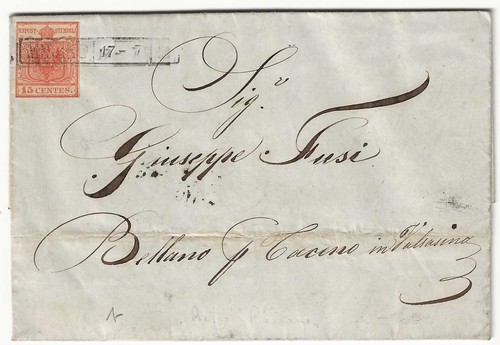 KKPOST-STEMPEL
15 CENTES.
17-
Sig.r
Giuseppe Fusi
Bellano p Taceno in Valsasina